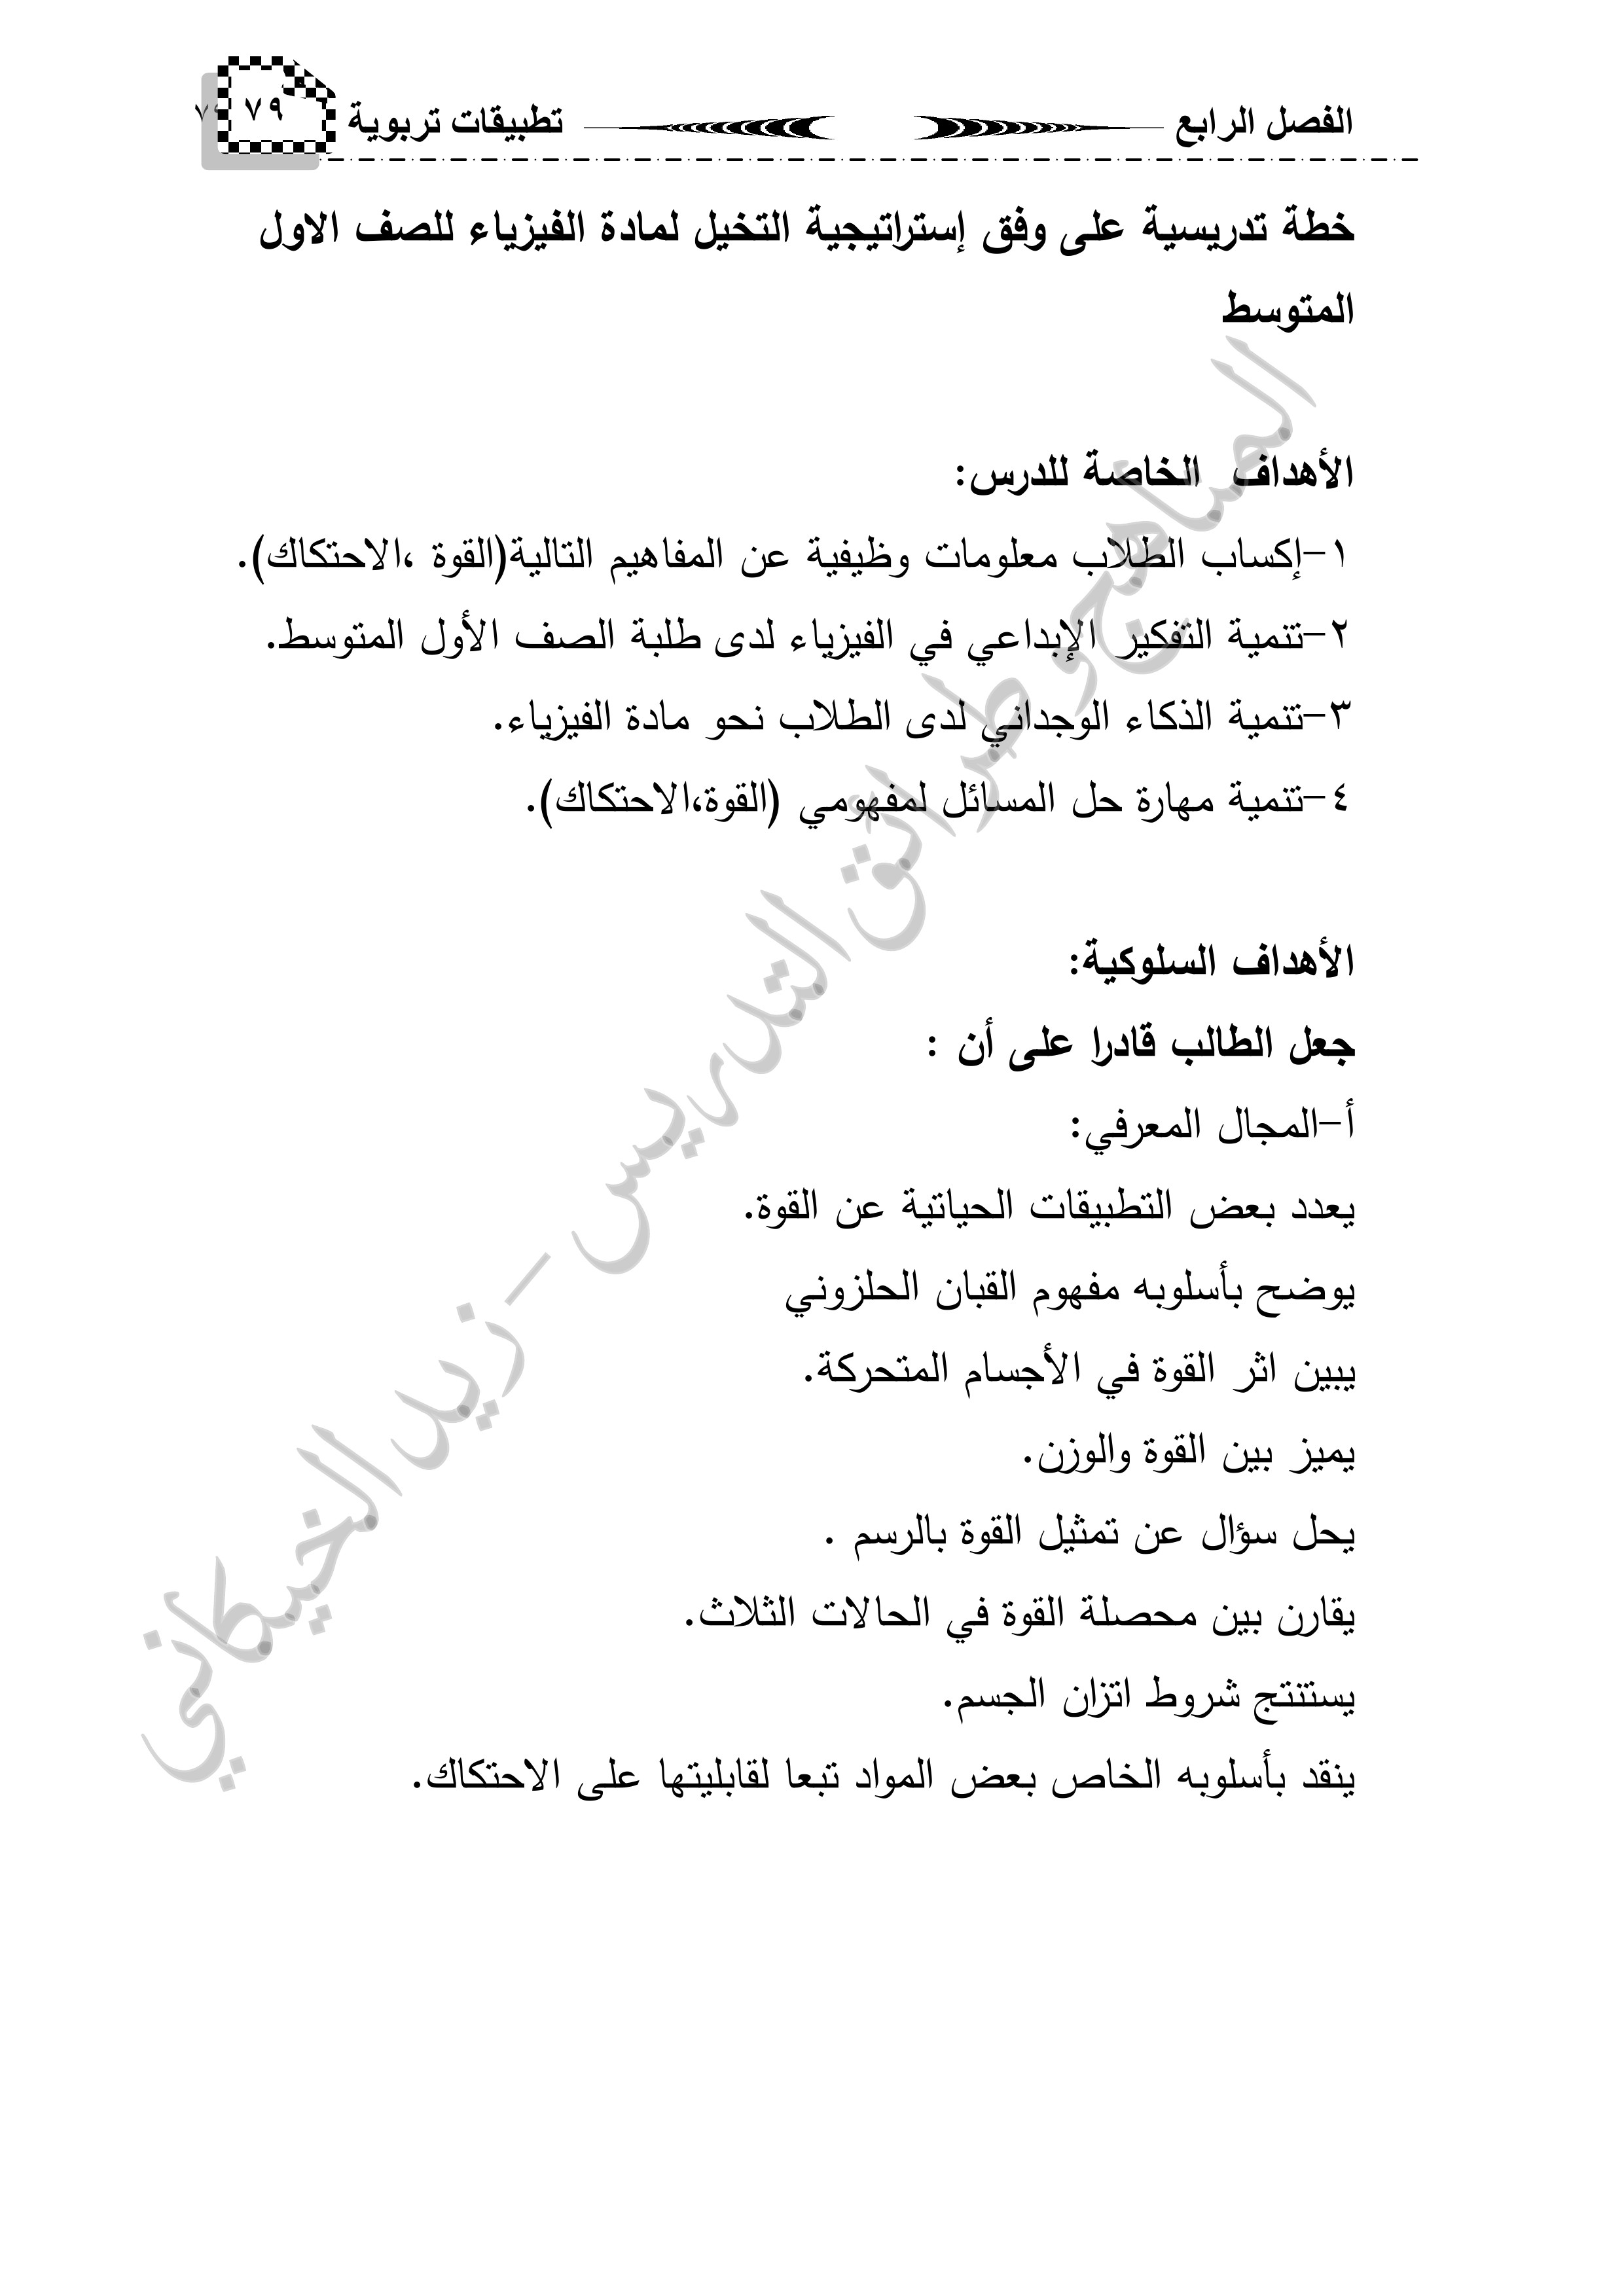 الفصل الرابع تطبيقات تربوية ٧٩
خطة تدريسية على وفق إستراتيجية التخيل لمادة الفيزياء للصف الاول
المتوسط
الأهداف الخاصة للدرس:
١-إكساب الطلاب معلومات وظيفية عن المفاهيم التالية(القوة ،الاحتكاك).
٢-تنمية التفكير الإبداعي في الفيزياء لدى طلبة الصف الأول المتوسط.
٣-تنمية الذكاء الوجداني لدى الطلاب نحو مادة الفيزياء.
٤-تنمية مهارة حل المسائل لمفهومي (القوة،الاحتكاك).
الأهداف السلوكية:
جعل الطالب قادرا على أن :
أ-المجال المعرفي:
يعدد بعض التطبيقات الحياتية عن القوة.
يوضح بأسلوبه مفهوم القبان الحلزوني
يبين اثر القوة في الأجسام المتحركة.
يميز بين القوة والوزن.
يحل سؤال عن تمثيل القوة بالرسم .
يقارن بين محصلة القوة في الحالات الثلاث.
يستنتج شروط اتزان الجسم.
ينقد بأسلوبه الخاص بعض المواد تبعا لقابليتها على الاحتكاك.
المناهج و طرائق التدريس - زيد الخيكاني